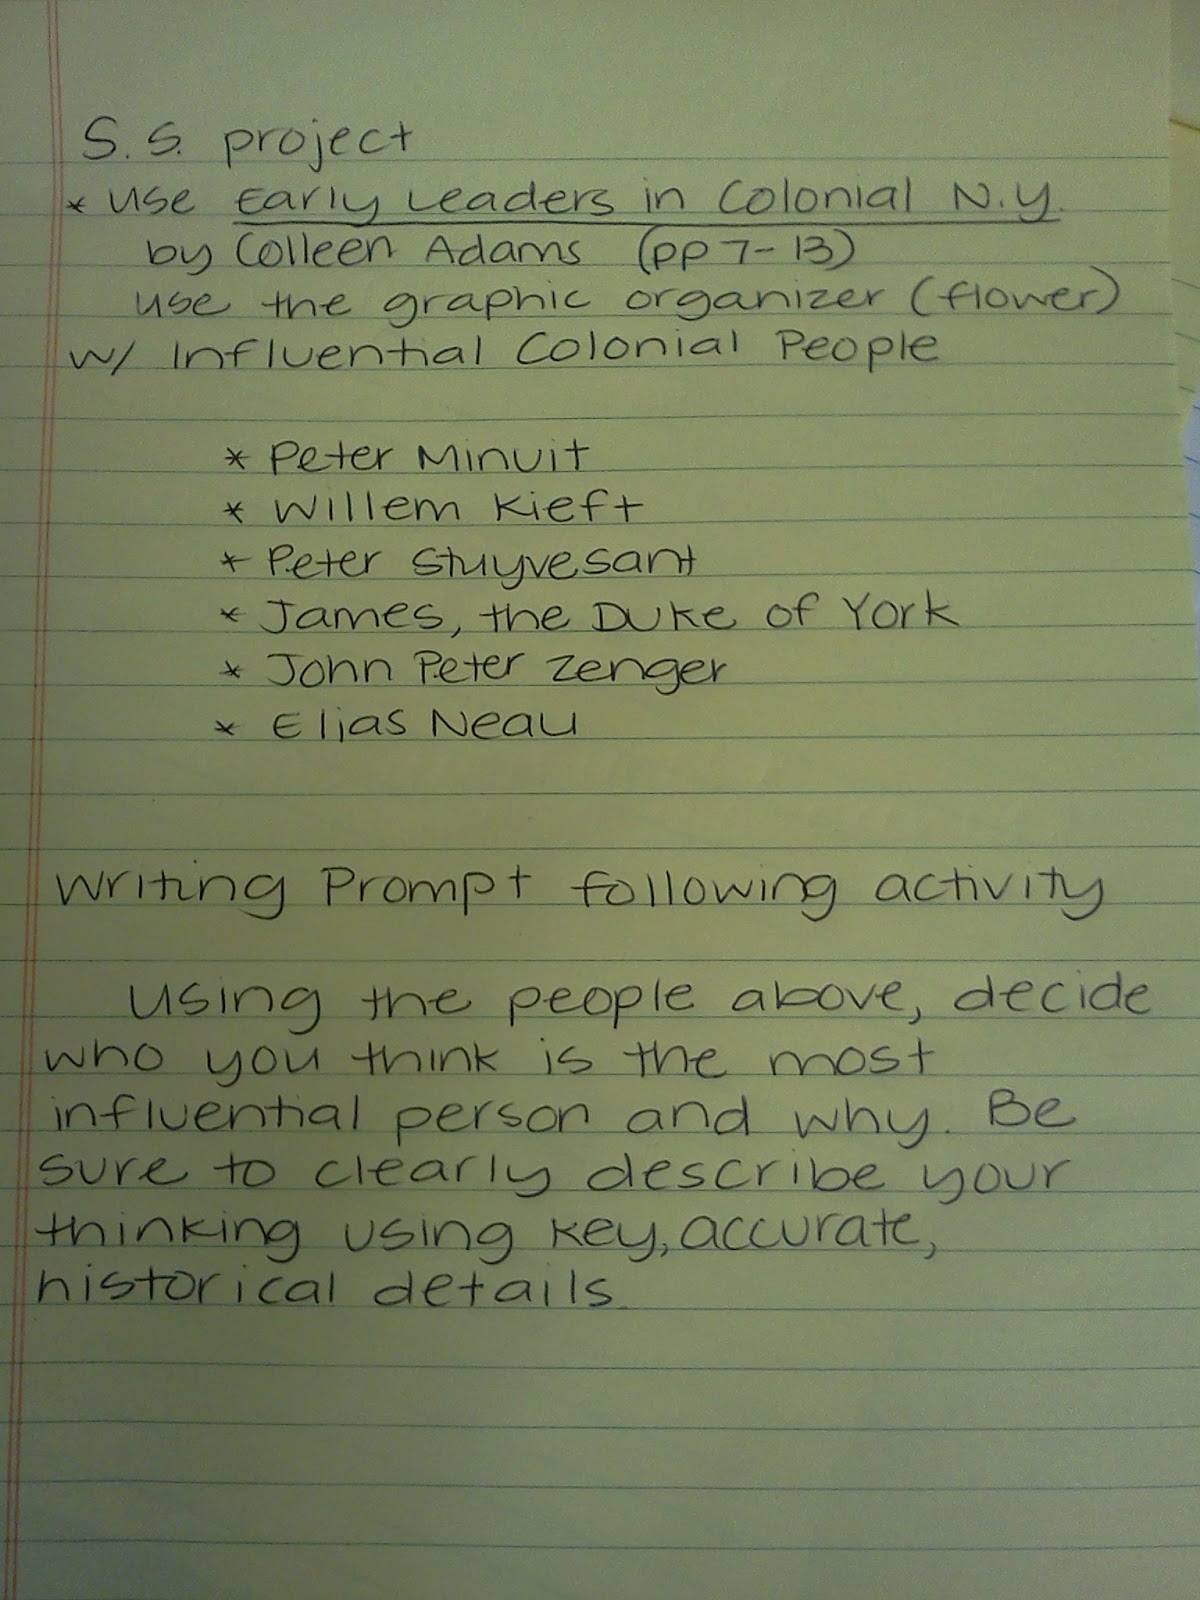 S.S. project
* Use Early Leaders in Colonial N.Y.
by Colleen Adams (pp 7-13)
use the graphic organizer (flower)
w/ Influential Colonial People
* Peter Minuit
* Willem Kieft
* Peter Stuyvesant
* James, the Duke of York
* John Peter Zenger
* Elias Neau
Writing Prompt following activity
Using the people above, decide
who you think is the most
influential person and why. Be
sure to clearly describe your
thinking using key, accurate,
historical details.